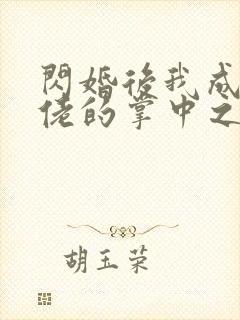 閃婚後我成
佬的掌中之
胡玉荣